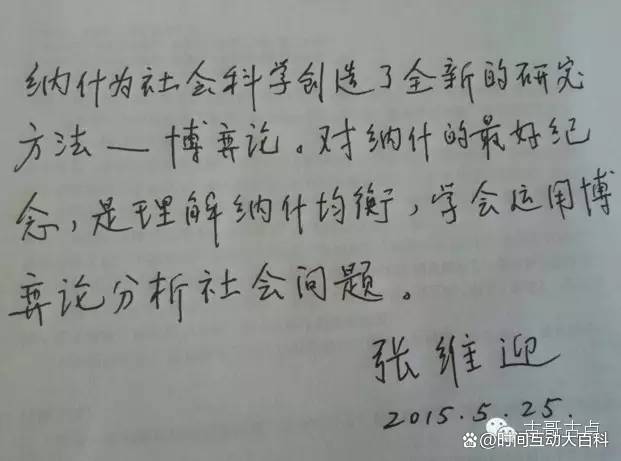 纳什为社会科学创造了全新的研究
方法—博弈论。对纳什的最好纪
念，是理解纳什均衡，学会运用博
弈论分析社会问题。
张维迎
2015.5.25.
古哥古点
时间互动大百科